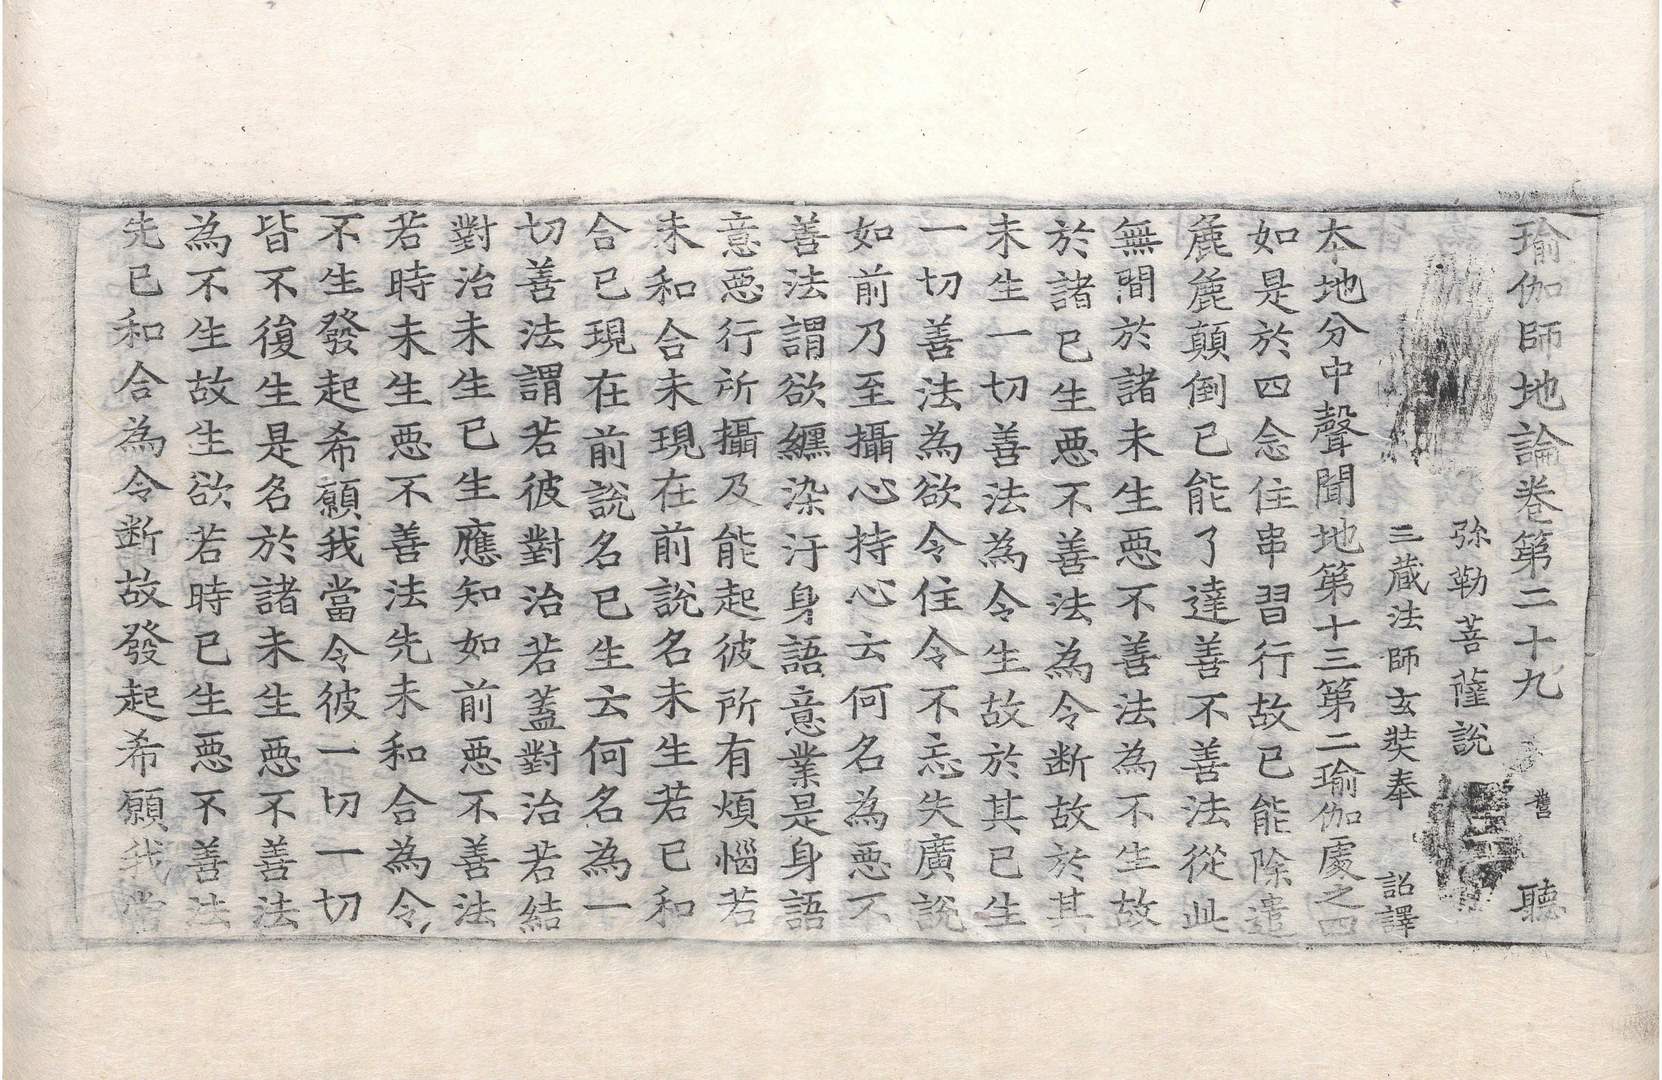 瑜伽師地論卷第二十九 聽
弥勒菩薩說
三藏法師玄奘奉 詔譯
本地分中聲聞地第十三第二瑜伽處之四
如是於四念住串習行故已能除遣
麁麁顛倒已能了達善不善法從此
無間於諸未生惡不善法為不生故
於諸已生惡不善法為令断故於其
未生一切善法為令生故於其已生
一切善法為欲令住令不忘失廣說
如前乃至攝心持心云何名為惡不
善法謂欲纏染汙身語意業是身語
意惡行所攝及能起彼所有煩惱若
未和合未現在前說名未生若已和
合已現在前說名已生云何名為一
切善法謂若彼對治若蓋對治若結
對治未生已生應知如前惡不善法
若時未生惡不善法先未和合為令
不生發起希願我當令彼一切一切
皆不復生是名於諸未生惡不善法
為不生故生欲若時已生惡不善法
先已和合為令断故發起希願我當